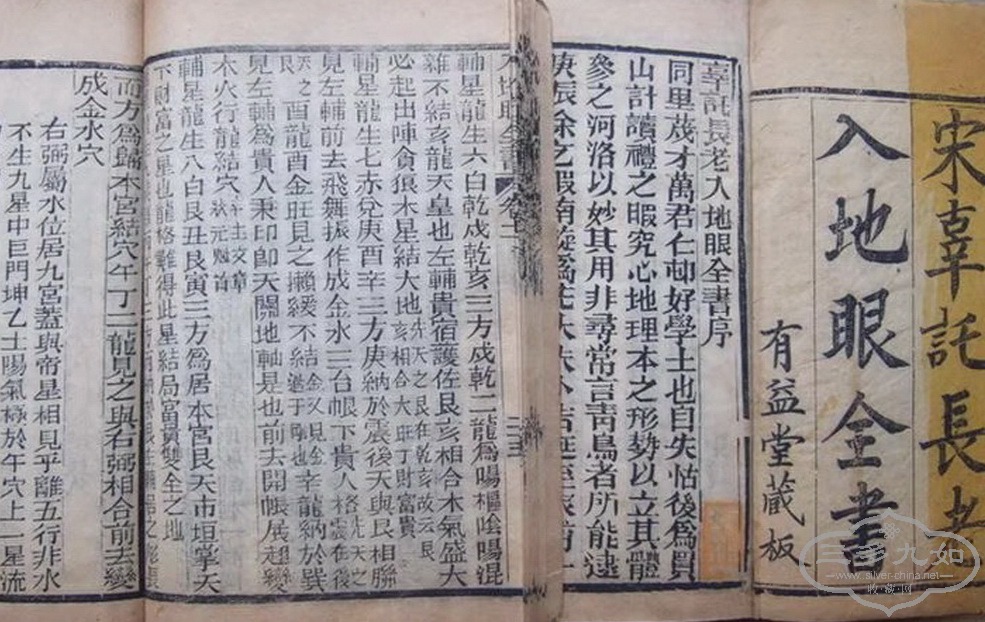 宋辜託長老
入地眼全書
有益堂藏板
辜託長老入地眼全書序
同里茂才萬君仁邨好學士也自失怙後為買
山計讀禮之暇究心地理本之形勢以立其體
參之河洛以妙其用非尋常言靑鳥者所能逮
庚辰余之
入地眼全書
輔星龍生六白乾戌乾亥三方戌乾二龍為陽樞陰陽混
雜不結亥龍天皇也左輔貴宿護佐艮亥相合木氣盛大
必起出陣貪狼木星結大地
輔星龍生七赤兌庚酉辛三方庚納於震後天與艮相聯
見左輔前去飛舞振作成金水三台帳下貴人格
酉金旺見之懶緩不結
見左輔為貴人秉印即天開地軸是也前去開帳展翅變
木火行龍結穴
輔星龍生八白艮丑艮寅三方為居本宮艮天市垣掌天
下財富之星也龍格難得此星結局富貴雙全之地
而方為歸本宮結穴午丁二龍見之與右弼相合前去變
成金水穴
右弼屬水位居九宮蓋與帝星相見乎離五行非水
不生九星中巨門坤乙土陽氣極於午穴上一星流
三多九如
www.silver-china.net
收藏网